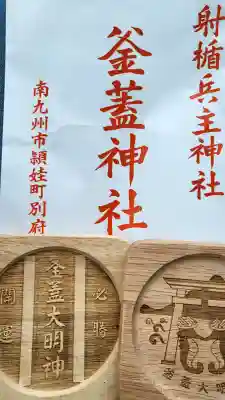 射楯兵主神社
釜蓋神社
南九州市頴娃町別府
必勝
釜蓋大明神
開運
釜蓋大明